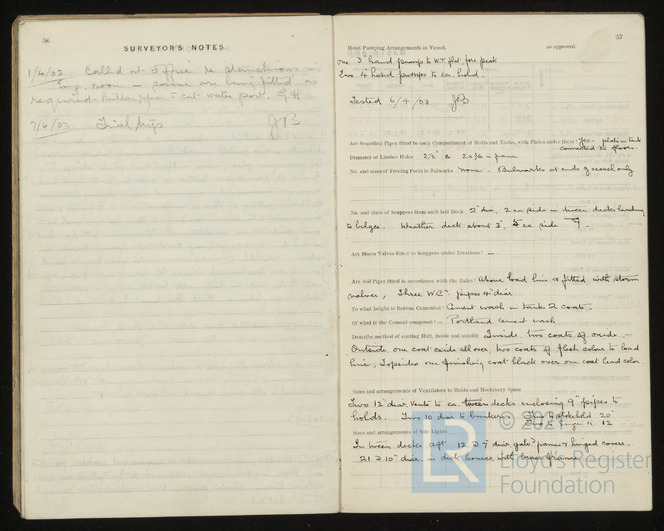 56
SURVEYOR'S NOTES
1/4/03 Called at office re stanchions in
room — same are being fitted as
required. water port. G.H
7/4/03 Trial trip. JB
57
Hand Pumping Arrangements in Vessel. as approved.
One 3" hand pump to W.T flat for peak
Two 4" hand pumps to ea. hold.
Tested 6/4/03 JB
Are Sounding Pipes fitted to each Compartment of Holds and Tanks, with Plates under them? Yes - plate in tank
connected to floors.
Diameter of Limber Holes 2½" & 2 x 3½ in frame
No. and sizes of Freeing Ports in Bulwarks None. Bulwarks at ends of vessel only
No. and sizes of Scuppers from each laid Deck 2" dia, 2 ea side in tween decks leading
to bilges. Weather deck about 3", 5 ea side
Are Storm Valves fitted to Scuppers under Erections? —
Are Soil Pipes fitted in accordance with the Rules? Above load line & fitted with storm
valves, Three W.C. pipes 4" diar
To what height is Bottom Cemented? Cement wash in tank 2 coats.
Of what is the Cement composed? — Portland cement wash
Describe method of coating Hull, inside and outside Inside, two coats of oxide. —
Outside, one coat oxide all over, two coats of flesh colour to load
line, Topsides one finishing coat black over one coat lead color
Sizes and arrangements of Ventilators to Holds and Machinery Space
Two 12" diar vents to ea. tween decks enclosing 9" pipes to
holds. Two 10 diar to bunkers. Two to stokehold 20"
Two to Engine R. 12
Sizes and arrangements of Side Lights
In tween decks aft 12 @ 9" diar galv frames & hinged covers.
21 @ 10" diar in deck houses, with brass frames
© 2021
LR
Lloyd's Register
Foundation